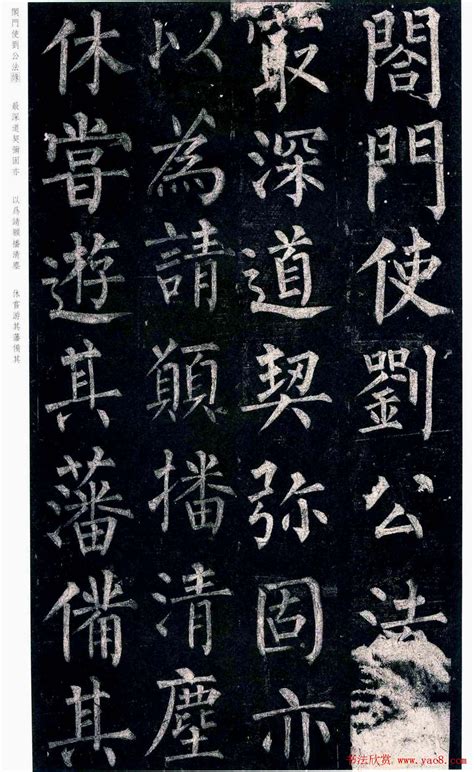 閤門使劉公法
㝡深道契弥固亦
以為請願播清塵
休嘗遊其藩備其
閤門使劉公法緣 最深道契彌固亦 以爲請願播清塵 休嘗游其藩備其
书法欣赏 www.yao8.com